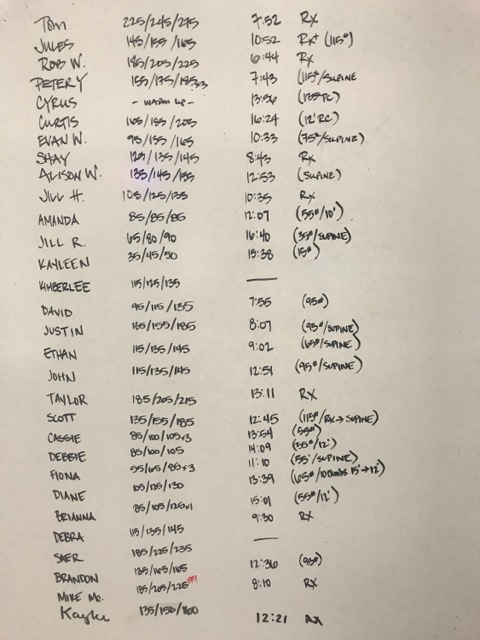 Tom 225/245/275 7:52 RX
JULES 145/155/165 10:52 RX+ (115#)
ROB W. 185/205/225 6:44 RX
PETER Y 155/175/185x3 7:43 (115#/SUPINE
CYRUS - WARM UP - 13:56
CURTIS 165/185/205 16:24 (12' RC)
EVAN W. 95/135/165 10:33 (75#/SUPINE)
SHAY 125/135/145 8:43 RX
ALISON W. 135/145/155 12:53 (SUPINE)
JILL H. 105/125/135 10:35 RX
AMANDA 85/85/85 12:07 (55#/10')
JILL R. 65/80/90 16:40 (35#/SUPINE)
KAYLEEN 35/45/50 15:38 (15#)
KIMBERLEE 115/125/135 —
DAVID 95/115/135 7:55 (95#)
JUSTIN 135/155/185 8:07 (95#/SUPINE)
ETHAN 115/135/145 9:02 (65#/SUPINE)
JOHN 115/135/145 12:51 (95#/SUPINE)
TAYLOR 185/205/215 13:11 RX
SCOTT 135/155/185 12:45 (115#/RX→SUPINE)
CASSIE 85/100/105x3 13:54 (55#)
DEBBIE 85/100/105 14:09 (55#/12')
FIONA 55/65/85x3 11:10 (55'/SUPINE)
DIANE 105/125/130 13:39 (65#/10 climbs 15'→12')
BRIANNA 85/105/125x1 15:01 (55#/12')
DEBRA 115/135/145 9:30 RX
SAER 185/225/235 —
BRANDON 135/165/165 12:36 (95#)
MIKE Mc. 185/205/225 8:10 RX
Kaylie 135/150/160 12:21